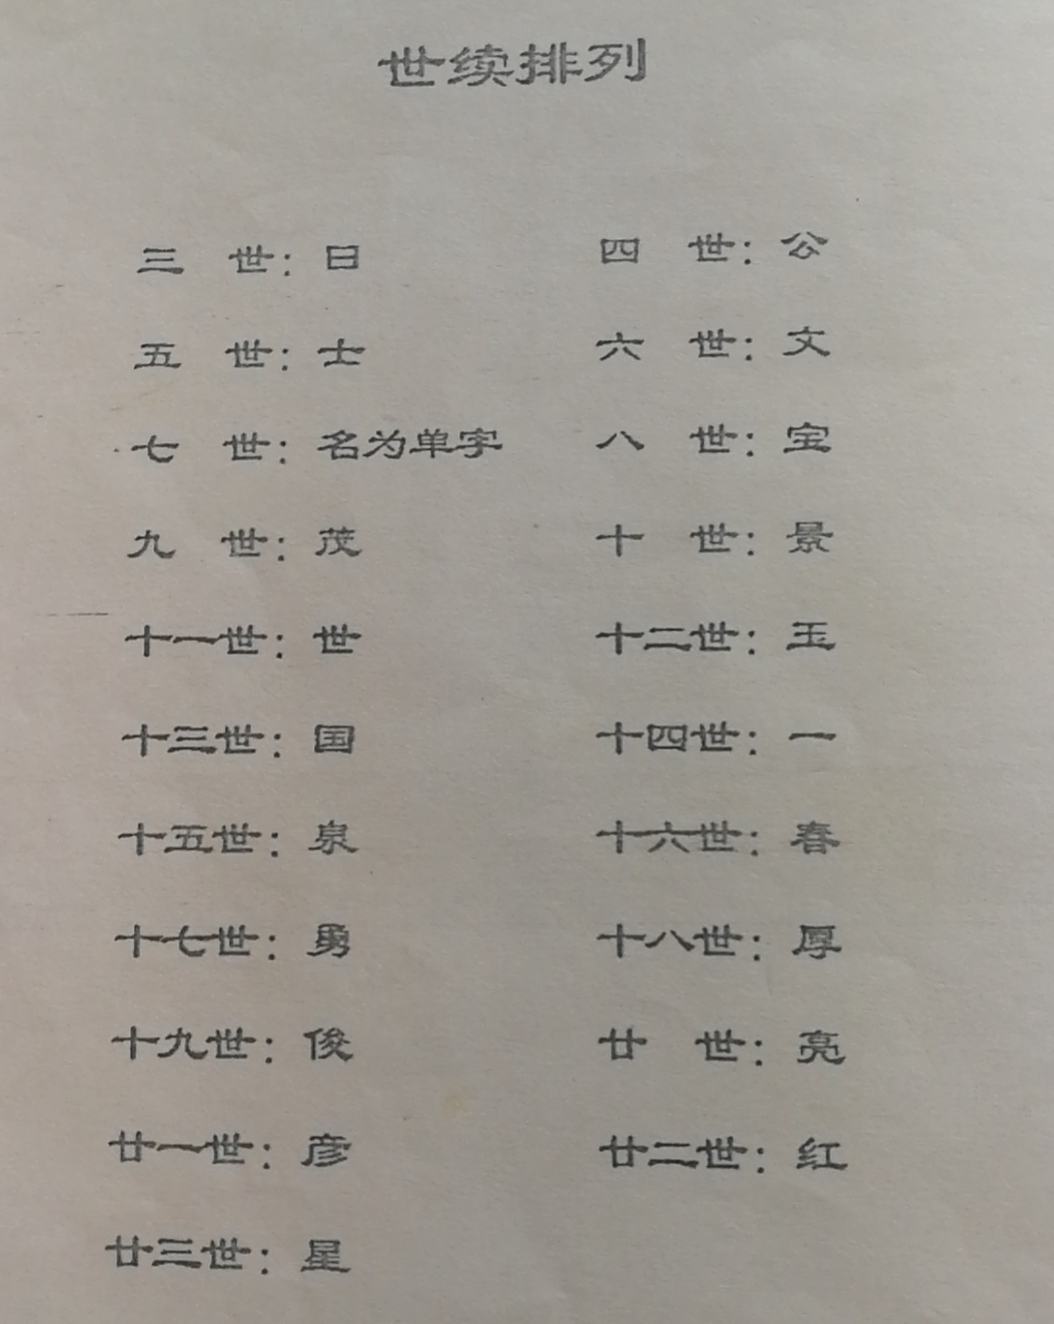 世续排列
三 世：日 四 世：公
五 世：士 六 世：文
七 世：名为单字 八 世：宝
九 世：茂 十 世：景
十一世：世 十二世：玉
十三世：国 十四世：一
十五世：泉 十六世：春
十七世：勇 十八世：厚
十九世：俊 廿 世：亮
廿一世：彦 廿二世：红
廿三世：星